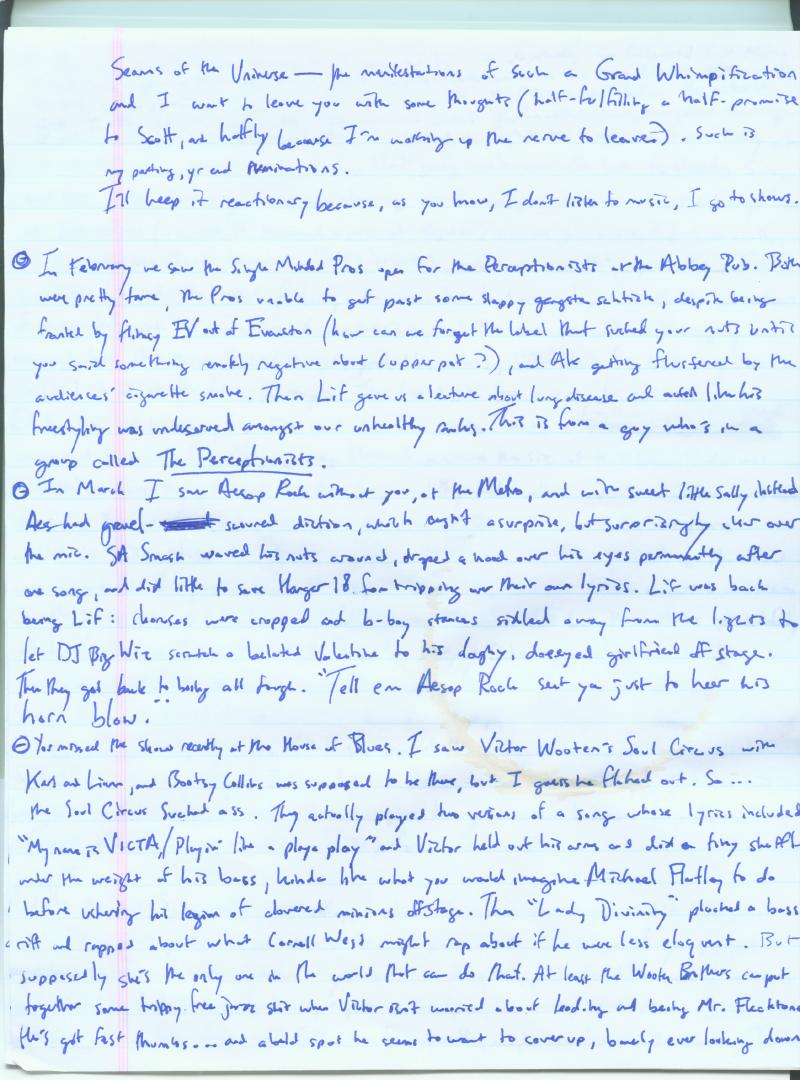 Seams of the Universe — the manifestations of such a Grand Whimpification
and I want to leave you with some thoughts (half-fulfilling a half-promise
to Scott, and halfly because I'm working up the nerve to leave). Such is
my parting, yr end ruminations.
I'll keep it reactionary because, as you know, I don't listen to music, I go to shows.
In February we saw the Single Minded Pros open for the Perceptionists at the Abbey Pub. Both
were pretty tame, the Pros unable to get past some slappy gangsta schtick, despite being
fronted by flimsy EV out of Evanston (how can we forget the label that sucked your nuts until
you said something remotely negative about Copperpot?), and Ak getting flustered by the
audiences' cigarette smoke. Then Lif gave us a lecture about lung disease and acted like his
freestyling was undeserved amongst our unhealthy ranks. This is from a guy who's in a
group called The Perceptionists.
In March I saw Aesop Rock without you, at the Metro, and with sweet little Sally instead
Aes had gravel- scoured diction, which ain't a surprise, but surprisingly clear over
the mic. SA Smash waved his nuts around, draped a hood over his eyes permanently after
one song, and did little to save Hanger 18 from tripping over their own lyrics. Lif was back
being Lif: choruses were cropped and b-boy stances sidled away from the lights to
let DJ Big Wiz scratch a belated Valentine to his doughy, doeeyed girlfriend off stage.
Then they got back to being all tough. "Tell em Aesop Rock sent ya just to hear his
horn blow."
You missed the show recently at the House of Blues. I saw Victor Wooten's Soul Circus with
Karl and Liam, and Bootsy Collins was supposed to be there, but I guess he flaked out. So...
the Soul Circus sucked ass. They actually played two versions of a song whose lyrics included
"My name is VICTA,/Playin' like a playa play" and Victor held out his arms and did a tiny shuffle
under the weight of his bass, kinda like what you would imagine Michael Flatley to do
before ushering his legion of clovered minions offstage. Then "Lady Divinity" plucked a bass
riff and rapped about what Cornell West might rap about if he were less eloquent. But
supposedly she's the only one in the world that can do that. At least the Wooten Brothers can put
together some trippy free jazz shit when Victor isn't worried about leading and being Mr. Flecktone
He's got fast thumbs... and a bald spot he seems to want to cover up, barely ever looking down